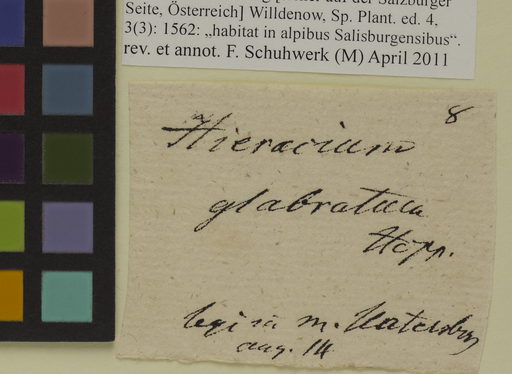 Seite, Österreich] Willdenow, Sp. Plant. ed. 4,
3(3): 1562: „habitat in alpibus Salisburgensibus“.
rev. et annot. F. Schuhwerk (M) April 2011
8
Hieracium
glabratum
Hopp.
legi in m.
aug. 14